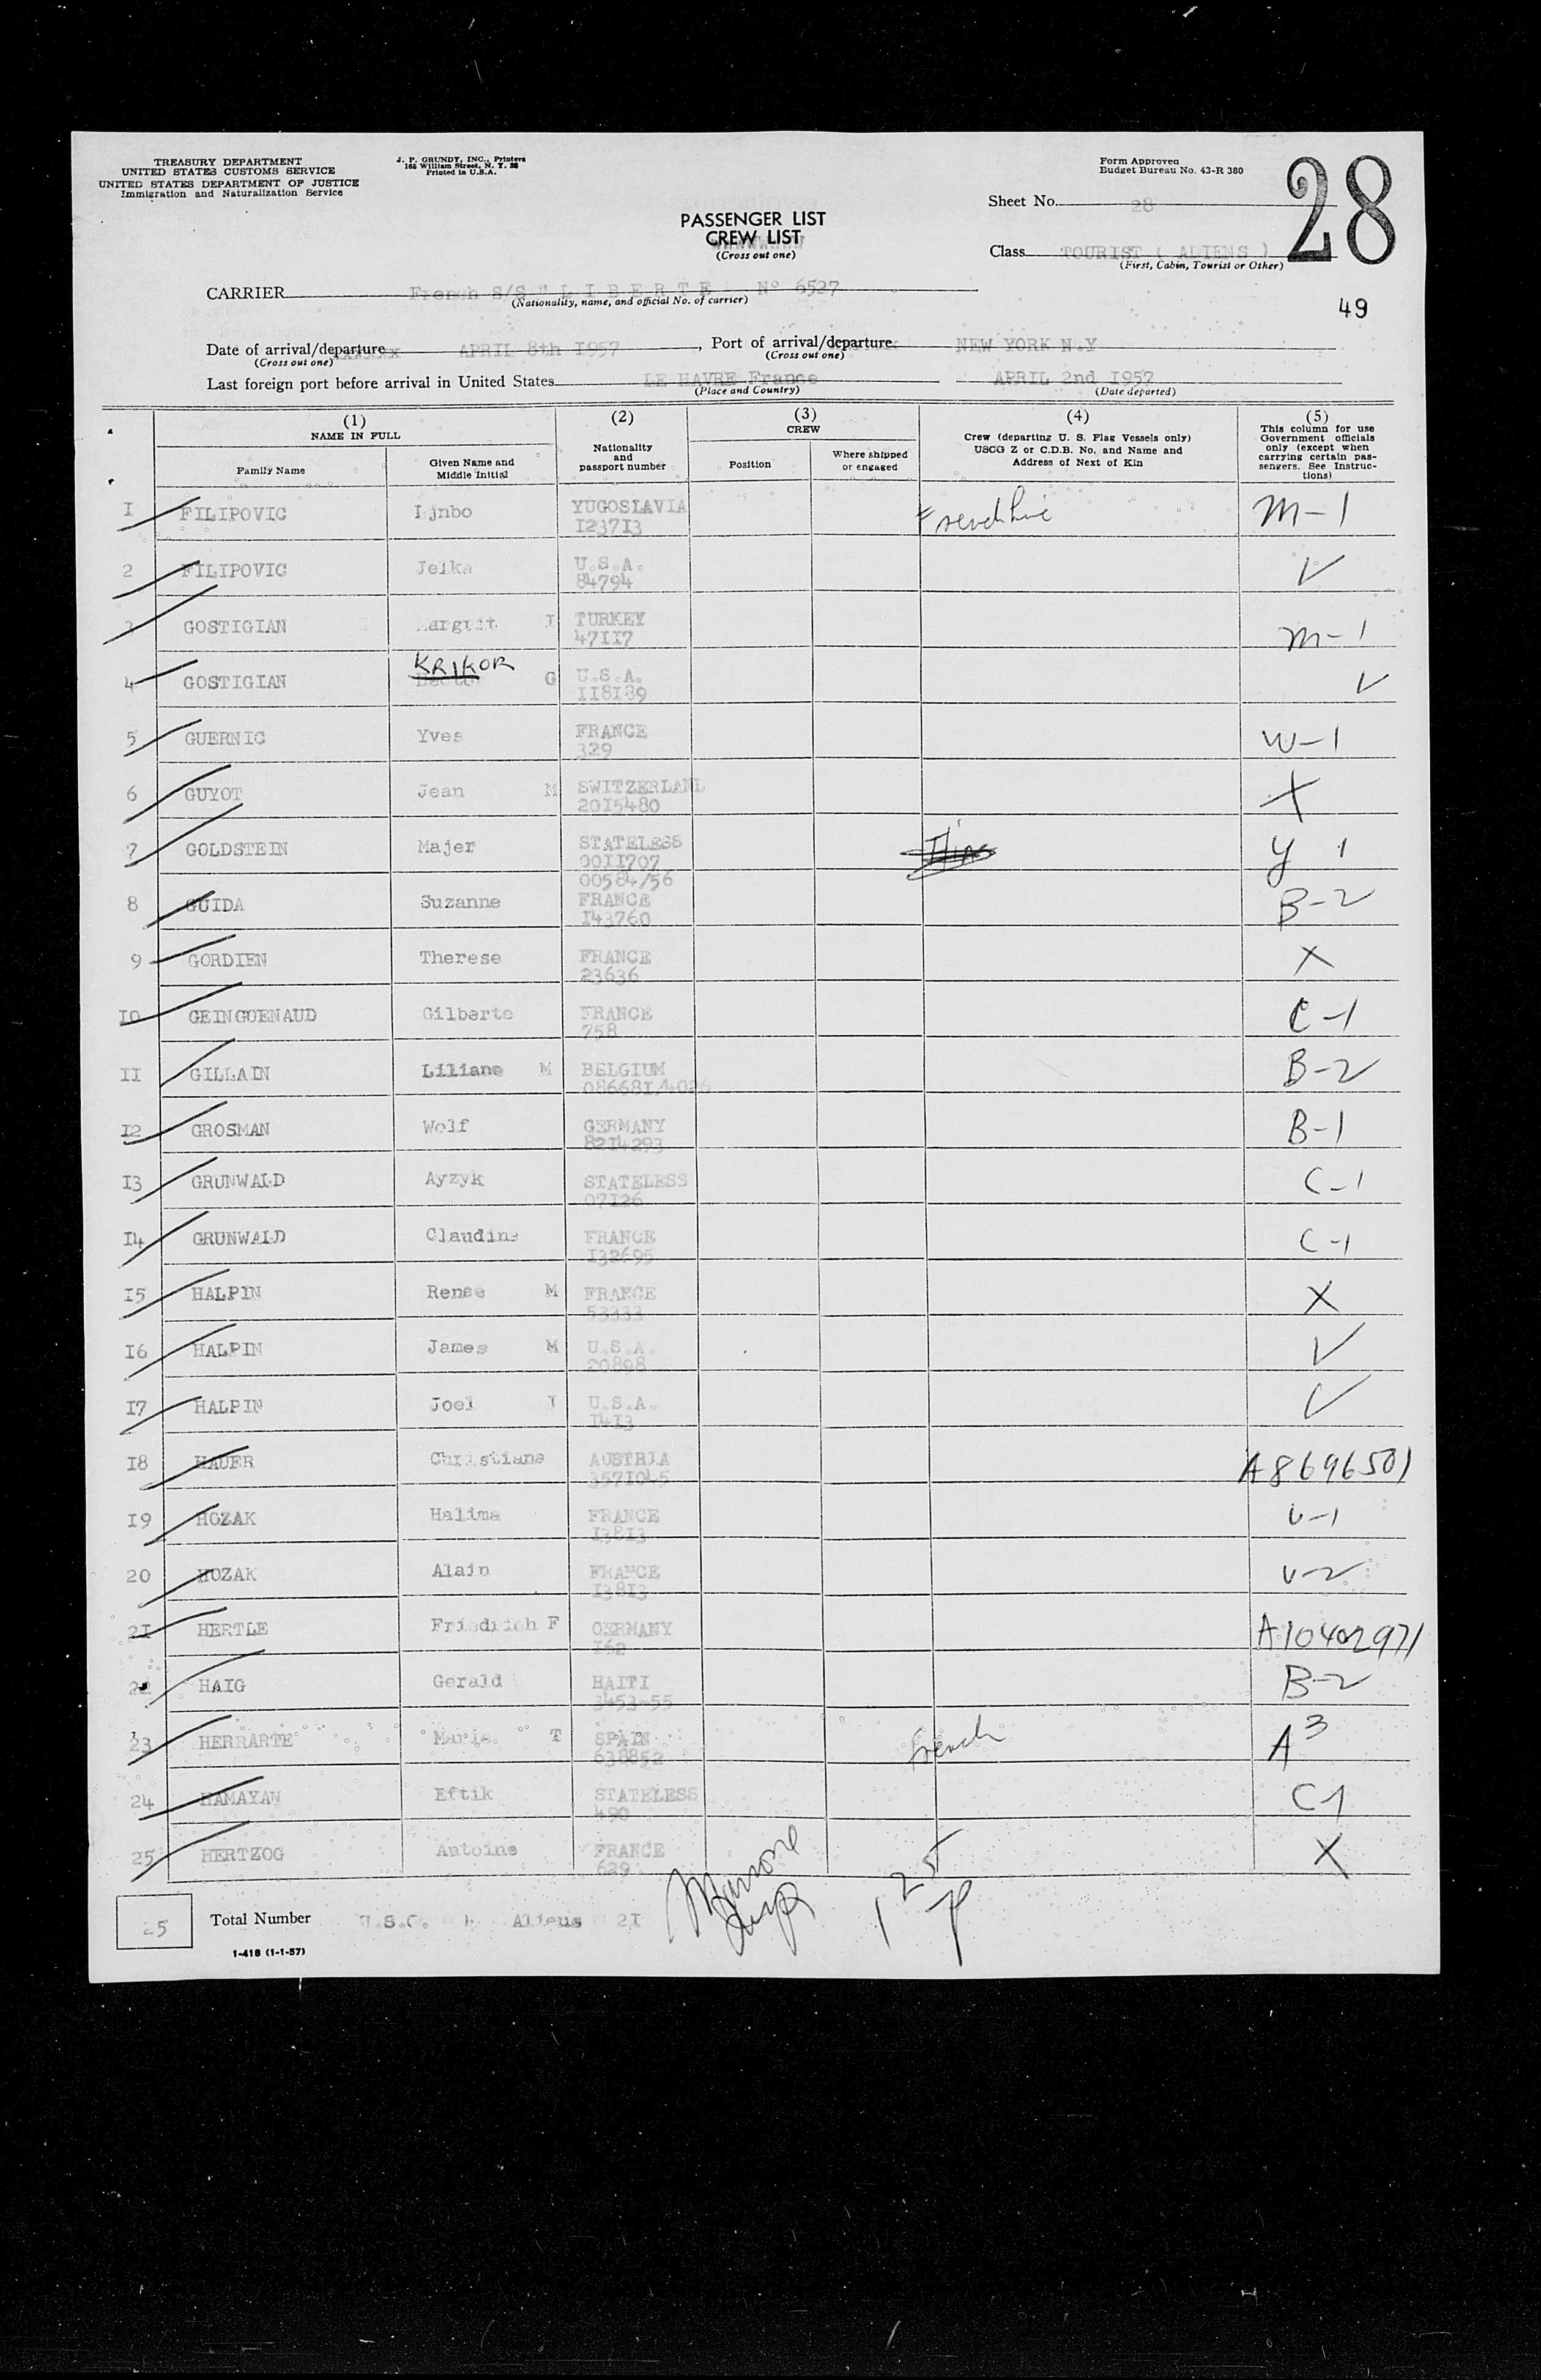 TREASURY DEPARTMENT
UNITED STATES CUSTOMS SERVICE
UNITED STATES DEPARTMENT OF JUSTICE
Immigration and Naturalization Service
J. P. GRUNDY, INC., Printers
166 William Street, N. Y. 38
Printed in U.S.A.
Form Approved
Budget Bureau No. 43-R 380
28
Sheet No. 28
PASSENGER LIST
CREW LIST
(Cross out one)
Class TOURIST ( ALIENS )
(First, Cabin, Tourist or Other)
CARRIER French S/S " L I B E R T E N° 6527
(Nationality, name, and official No. of carrier)
49
Date of arrival/departure APRIL 8th I957, Port of arrival/departure NEW YORK N.Y
(Cross out one) (Cross out one)
Last foreign port before arrival in United States LE HAVRE France APRIL 2nd I957
(Place and Country) (Date departed)
(1) NAME IN FULL (2) (3) CREW (4) (5)
Family Name Given Name and Middle Initial Nationality and passport number Position Where shipped or engaged Crew (departing U. S. Flag Vessels only) USCG Z or C.D.B. No. and Name and Address of Next of Kin This column for use Government officials only (except when carrying certain passengers. See Instructions)
I FILIPOVIC Ljnbo YUGOSLAVIA M-1
I237I3
2 FILIPOVIC Jelka U.S.A. V
84794
3 GOSTIGIAN Margrit I TURKEY M-1
47II7
KRIKOR
4 GOSTIGIAN G U.S.A. V
II8I89
5 GUERNIC Yves FRANCE W-1
329
6 GUYOT Jean M SWITZERLAND X
20I5480
7 GOLDSTEIN Majer STATELESS Y 1
00II707
00584/56
8 GUIDA Suzanne FRANCE B-2
I43760
9 GORDIEN Therese FRANCE X
23636
I0 GEINGUENAUD Gilberte FRANCE C-1
758
II GILLAIN Liliane M BELGIUM B-2
08668I/4026
I2 GROSMAN Wolf GERMANY B-1
82I4293
I3 GRUNWALD Ayzyk STATELESS C-1
07I26
I4 GRUNWALD Claudine FRANCE C-1
I32695
I5 HALPIN Renee M FRANCE X
53333
I6 HALPIN James M U.S.A. V
20898
I7 HALPIN Joel I U.S.A. V
I4I3
I8 HAUER Christiane AUSTRIA A8696501
I9 HOZAK Halima FRANCE U-1
I38I3
20 HOZAK Alain FRANCE U-2
I38I3
2I HERTLE Friedrich F GERMANY A10402971
I62
22 HAIG Gerald HAITI B-2
3453-55
23 HERRARTE Marie T SPAIN French A3
638852
24 HAMAYAN Eftik STATELESS C1
490
25 HERTZOG Antoine FRANCE X
629
25 Total Number U.S.C. 4 Aliens 2I
1-418 (1-1-57)